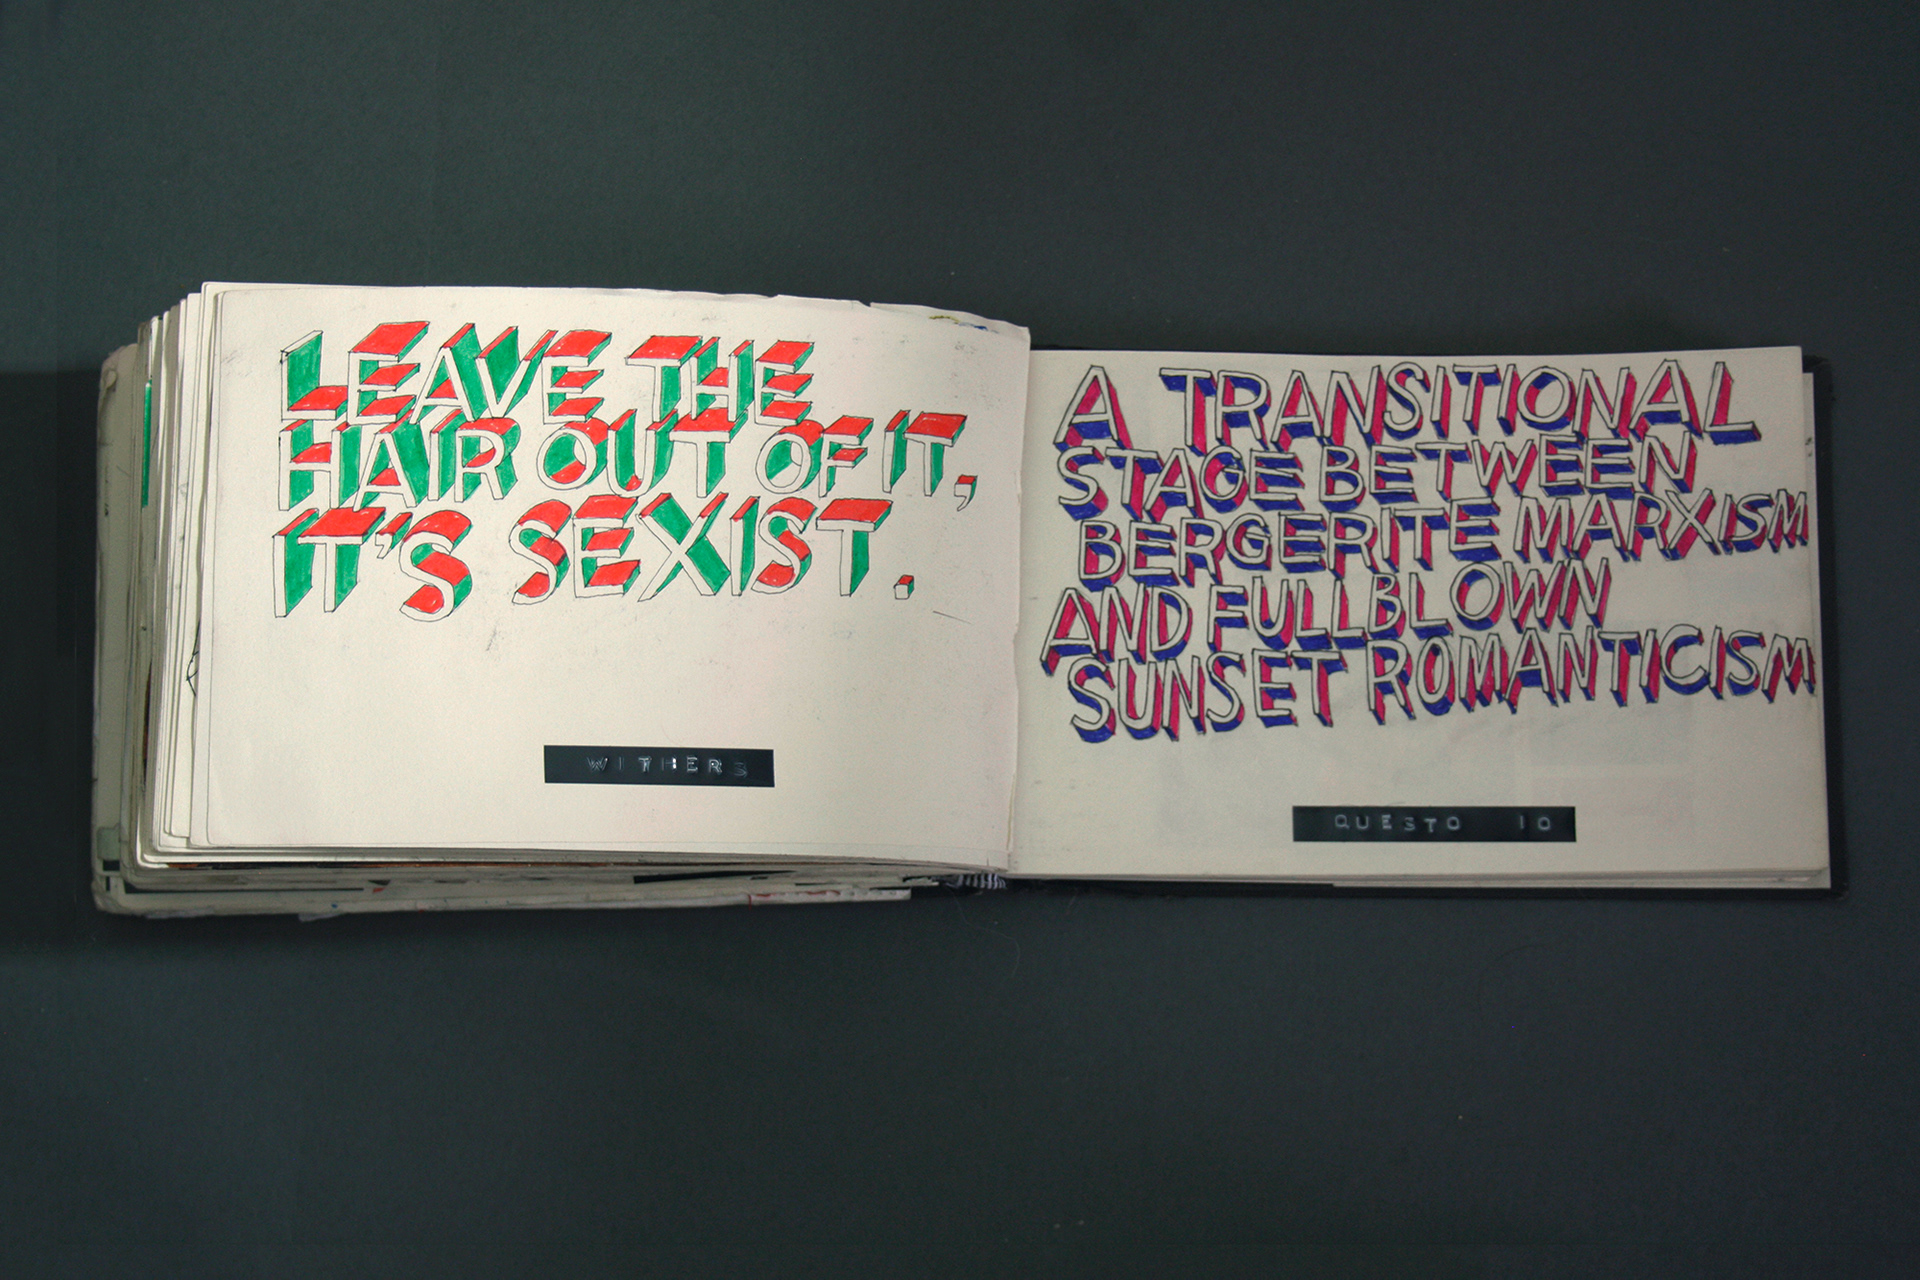 LEAVE THE
HAIR OUT OF IT,
IT'S SEXIST.
WITHERS
A TRANSITIONAL
STAGE BETWEEN
BERGERITE MARXISM
AND FULLBLOWN
SUNSET ROMANTICISM
QUESTO IO